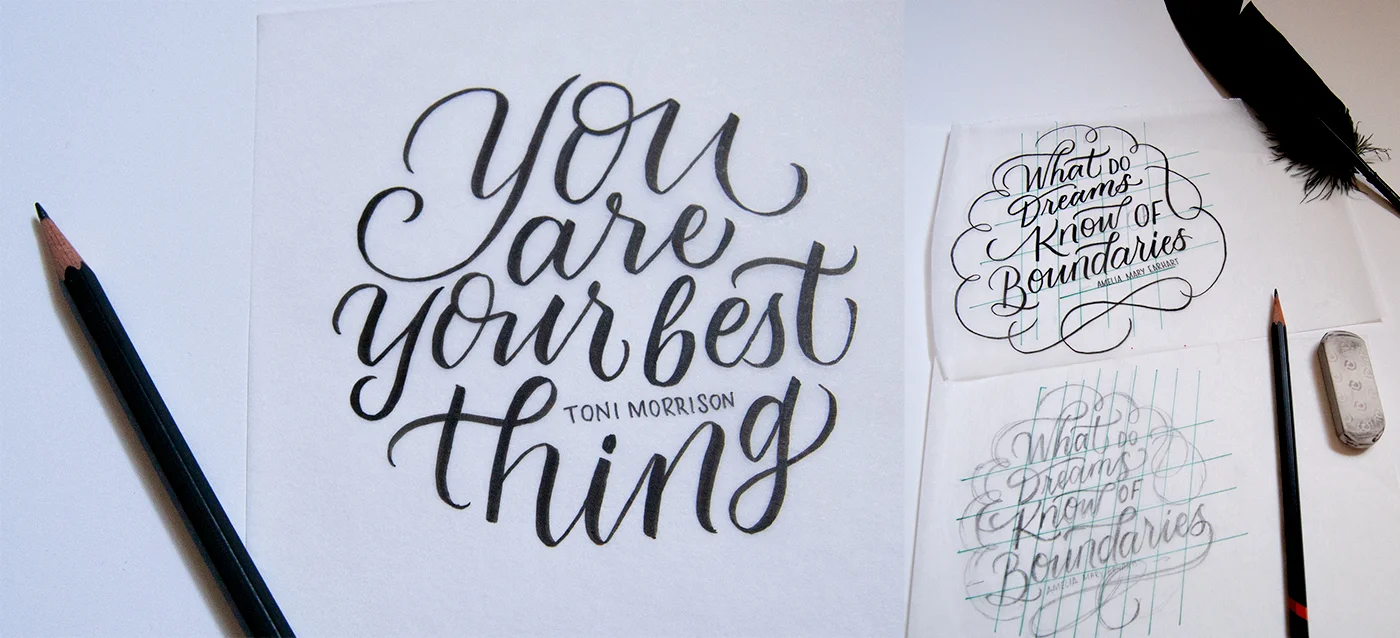 You
are
your best
thing
TONI MORRISON
What DO
Dreams
Know OF
Boundaries
AMELIA MARY EARHART
What DO
Dreams
Know OF
Boundaries
AMELIA MARY